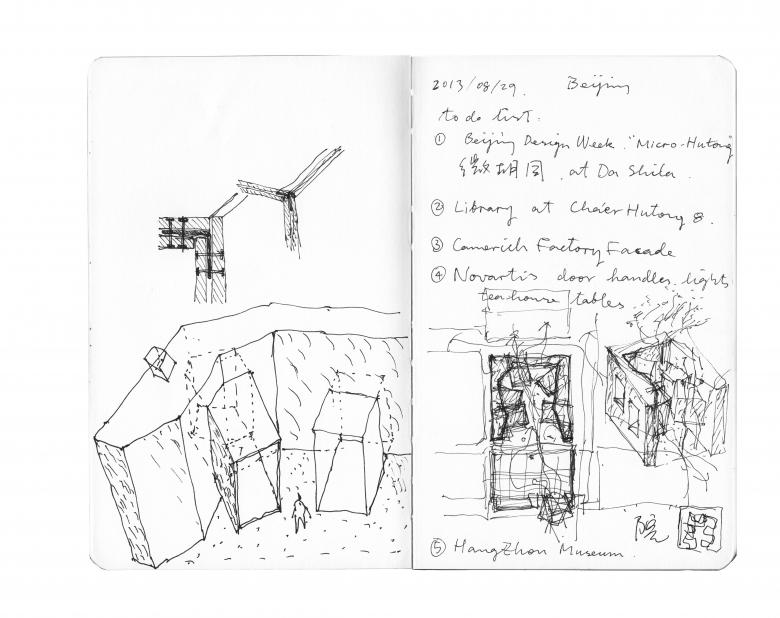 2013/08/29. Beijing
to do list:
① Beijing Design Week. "Micro-Hutong"
微胡同 at Da Shila.
② Library at Cha'er Hutong 8.
③ Camerich Factory Facade
④ Novartis door handles, lights
tea house tables
院
⑤ HangZhou Museum.